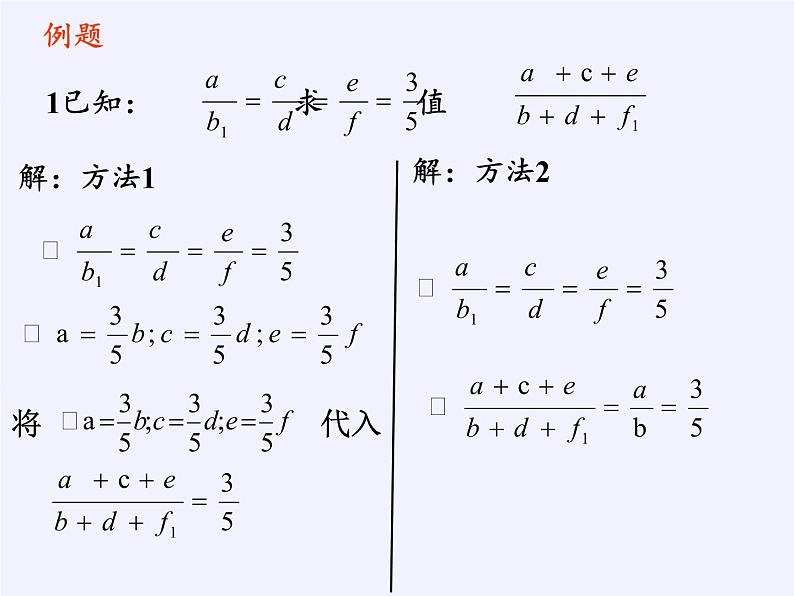 例题
1已知： a/b₁ = c/d = e/f = 3/5 求 值 (a + c + e)/(b + d + f₁)
解：方法1
□ a/b₁ = c/d = e/f = 3/5
□ a = 3/5 b; c = 3/5 d; e = 3/5 f
将 □a=3/5 b;c=3/5 d;e=3/5 f 代入
(a + c + e)/(b + d + f₁) = 3/5
解：方法2
□ a/b₁ = c/d = e/f = 3/5
□ (a + c + e)/(b + d + f₁) = a/b = 3/5